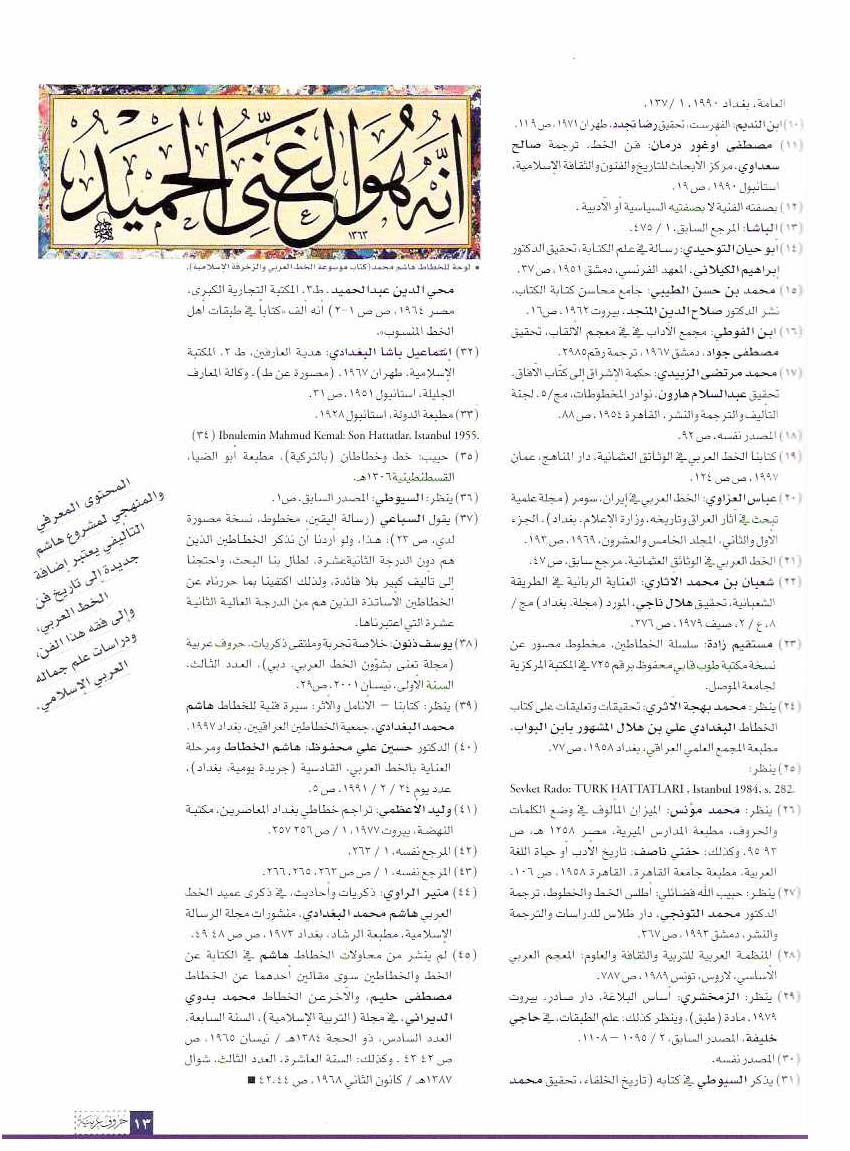 العامة، بغداد ١٩٩٠، ١ /١٣٧.
(١٠) ابن النديم: الفهرست، تحقيق رضا تجدد، طهران ١٩٧١، ص ١١٩.
(١١) مصطفى اوغور درمان: فن الخط، ترجمة صالح
سعداوي، مركز الأبحاث للتاريخ والفنون والثقافة الإسلامية،
استانبول ١٩٩٠، ص ١٩.
(١٢) بصفته الفنية لا بصفتيه السياسية أو الأدبية .
(١٣) الباشا: المرجع السابق، ١ / ٤٧٥.
(١٤) أبو حيان التوحيدي: رسالة في علم الكتابة، تحقيق الدكتور
إبراهيم الكيلاني، المعهد الفرنسي، دمشق ١٩٥١، ص ٣٧.
(١٥) محمد بن حسن الطيبي: جامع محاسن كتابة الكتاب،
نشر الدكتور صلاح الدين المنجد، بيروت ١٩٦٢، ص١٦.
(١٦) ابن الفوطي: مجمع الآداب في في معجم الألقاب، تحقيق
مصطفى جواد، دمشق ١٩٦٧، ترجمة رقم ٢٩٨٥.
(١٧) محمد مرتضى الزبيدي: حكمة الإشراق إلى كتّاب الآفاق،
تحقيق عبدالسلام هارون، نوادر المخطوطات، مج/٥، لجنة
التأليف والترجمة والنشر، القاهرة ١٩٥٤، ص ٨٨.
(١٨) المصدر نفسه، ص ٩٢.
(١٩) كتابنا الخط العربي في الوثائق العثمانية، دار المناهج، عمان
١٩٩٧، ص ص ١٢٤.
(٢٠) عباس العزاوي: الخط العربي في إيران، سومر (مجلة علمية
تبحث في آثار العراق وتاريخه، وزارة الإعلام، بغداد)، الجزء
الأول والثاني، المجلد الخامس والعشرون، ١٩٦٩، ص ١٩٣.
(٢١) الخط العربي في الوثائق العثمانية، مرجع سابق، ص ٤٧.
(٢٢) شعبان بن محمد الآثاري: العناية الربانية في الطريقة
الشعبانية، تحقيق هلال ناجي، المورد (مجلة، بغداد) مج /
٨، ع / ٢، صيف ١٩٧٩، ص ٢٧٦.
(٢٣) مستقيم زادة: سلسلة الخطاطين، مخطوط مصور عن
نسخة مكتبة طوب قابي محفوظ برقم ٧٢٥ في المكتبة المركزية
لجامعة الموصل.
(٢٤) ينظر: محمد بهجة الأثري: تحقيقات وتعليقات على كتاب
الخطاط البغدادي علي بن هلال المشهور بابن البواب،
مطبعة المجمع العلمي العراقي، بغداد ١٩٥٨، ص ٧٧.
(٢٥) ينظر:
Sevket Rado: TURK HATTATLARI , Istanbul 1984, s. 282.
(٢٦) ينظر: محمد مؤنس: الميزان المألوف في وضع الكلمات
والحروف، مطبعة المدارس الميرية، مصر ١٢٥٨ هـ، ص
٩٣ ٩٥. وكذلك: حفني ناصف: تاريخ الأدب أو حياة اللغة
العربية، مطبعة جامعة القاهرة، القاهرة ١٩٥٨، ص ١٠٦.
(٢٧) ينظر: حبيب الله فضائلي: أطلس الخط والخطوط، ترجمة
الدكتور محمد التونجي، دار طلاس للدراسات والترجمة
والنشر، دمشق ١٩٩٣، ص ٣٦٧.
(٢٨) المنظمة العربية للتربية والثقافة والعلوم: المعجم العربي
الأساسي، لاروس، تونس ١٩٨٩، ص ٧٨٧.
(٢٩) ينظر: الزمخشري: أساس البلاغة، دار صادر، بيروت
١٩٧٩، مادة (طبق). وينظر كذلك: علم الطبقات، في حاجي
خليفة، المصدر السابق، ٢ / ١٠٩٥ – ١١٠٨.
(٣٠) المصدر نفسه.
(٣١) يذكر السيوطي في كتابه (تاريخ الخلفاء، تحقيق محمد
إنه هو الغني الحميد
١٣٦٣
• لوحة للخطاط هاشم محمد (كتاب موسوعة الخط العربي والزخرفة الاسلامية).
محي الدين عبدالحميد، ط٣، المكتبة التجارية الكبرى،
مصر ١٩٦٤، ص ص ١-٢) أنه ألف «كتاباً في طبقات أهل
الخط المنسوب».
(٣٢) إسماعيل باشا البغدادي: هدية العارفين، ط ٢، المكتبة
الإسلامية، طهران ١٩٦٧، (مصورة عن ط)، وكالة المعارف
الجليلة، استانبول ١٩٥١، ص ٣١.
(٣٣) مطبعة الدولة، استانبول ١٩٢٨.
(٣٤) Ibnulemin Mahmud Kemal: Son Hattatlar, Istanbul 1955.
(٣٥) حبيب: خط وخطاطان (بالتركية)، مطبعة أبو الضيا،
القسطنطينية ١٣٠٦هـ.
(٣٦) ينظر: السيوطي: المصدر السابق، ص١.
(٣٧) يقول السباعي (رسالة اليقين، مخطوط، نسخة مصورة
لدي، ص ٢٣): هذا، ولو أردنا أن نذكر الخطاطين الذين
هم دون الدرجة الثانية عشرة، لطال بنا البحث، واحتجنا
إلى تأليف كبير بلا فائدة، ولذلك اكتفينا بما حررناه عن
الخطاطين الأساتذة الذين هم من الدرجة العالية الثانية
عشرة التي اعتبرناها.
(٣٨) يوسف ذنون: خلاصة تجربة وملتقى ذكريات، حروف عربية
(مجلة تعنى بشؤون الخط العربي، دبي)، العدد الثالث،
السنة الأولى، نيسان ٢٠٠١، ص٢٩.
(٣٩) ينظر: كتابنا – الأنامل والأثر: سيرة فنية للخطاط هاشم
محمد البغدادي، جمعية الخطاطين العراقيين، بغداد ١٩٩٧.
(٤٠) الدكتور حسين علي محفوظ: هاشم الخطاط ومرحلة
العناية بالخط العربي، القادسية (جريدة يومية، بغداد)،
عدد يوم ٢٤ / ٢ / ١٩٩١، ص ٥.
(٤١) وليد الأعظمي: تراجم خطاطي بغداد المعاصرين، مكتبة
النهضة، بيروت ١٩٧٧، ١ / ص ٢٥٦ ٢٥٧.
(٤٢) المرجع نفسه، ١ / ٢٦٣.
(٤٣) المرجع نفسه، ١ / ص ص ٢٦٣، ٢٦٥، ٢٦٦.
(٤٤) منير الراوي: ذكريات وأحاديث، في ذكرى عميد الخط
العربي هاشم محمد البغدادي، منشورات مجلة الرسالة
الإسلامية، مطبعة الرشاد، بغداد ١٩٧٣، ص ص ٤٨ ٤٩.
(٤٥) لم ينشر من محاولات الخطاط هاشم في الكتابة عن
الخط والخطاطين سوى مقالين أحدهما عن الخطاط
مصطفى حليم، والآخر عن الخطاط محمد بدوي
الديراني، في مجلة (التربية الإسلامية)، السنة السابعة،
العدد السادس، ذو الحجة ١٣٨٤هـ / نيسان ١٩٦٥، ص
ص ٤٢ ٤٣ . وكذلك: السنة العاشرة، العدد الثالث، شوال
١٣٨٧هـ / كانون الثاني ١٩٦٨، ص ٤٢،٤٤ ■
المحتوى المعرفي
والمنهجي لمشروع هاشم
التأليفي يعتبر إضافة
جديدة إلى تاريخ فن
الخط العربي،
وإلى فقه هذا الفن،
ودراسات علم جماله
العربي الإسلامي.
١٣ حروف عربية